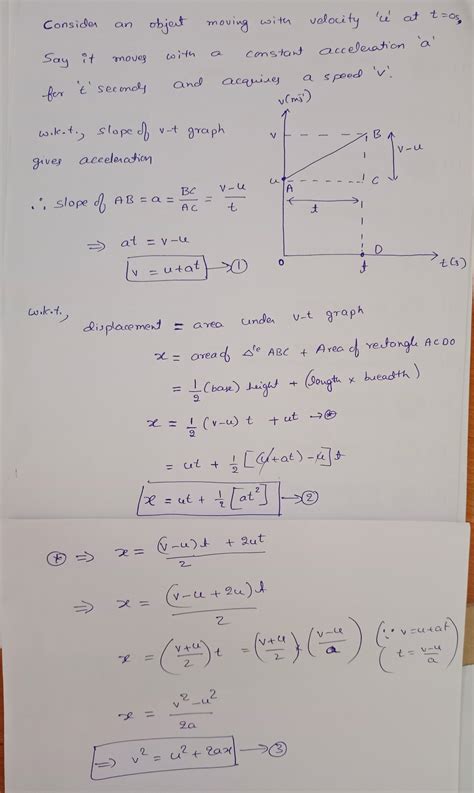 Consider an object moving with velocity 'u' at t=0s,
Say it moves with a constant acceleration 'a'
for 't' seconds and acquires a speed 'v'.
w.k.t., slope of v-t graph
gives acceleration
∴ slope of AB = a = BC/AC = (v-u)/t
⇒ at = v-u
v = u+at → ①
v(ms⁻¹)
v
B
v-u
u
A
C
t
D
0
t
t(s)
w.k.t.,
displacement = area under v-t graph
x = area of Δle ABC + Area of rectangle ACDO
= 1/2 (base) height + (length × breadth)
x = 1/2 (v-u) t + ut → ⊛
= ut + 1/2 [(u+at) - u] t
x = ut + 1/2 [at²] → ②
⊛ ⇒ x = ((v-u)t + 2ut)/2
⇒ x = ((v-u+2u)t)/2
x = ((v+u)/2) t = ((v+u)/2) · ((v-u)/a) (∵ v=u+at
t = (v-u)/a)
x = (v²-u²)/2a
⇒ v² = u² + 2ax → ③